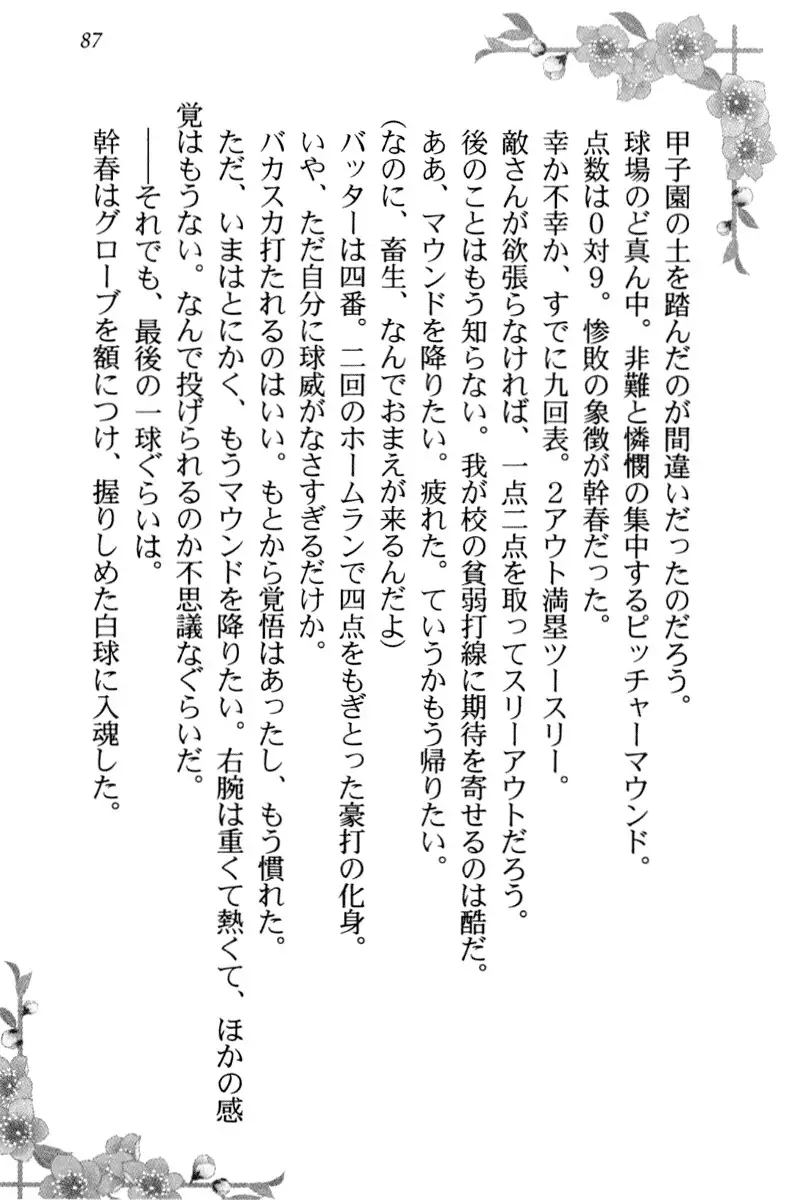 87
甲子園の土を踏んだのが間違いだったのだろう。
球場のど真ん中。非難と憐憫の集中するピッチャーマウンド。
点数は０対９。惨敗の象徴が幹春だった。
幸か不幸か、すでに九回表。２アウト満塁ツースリー。
敵さんが欲張らなければ、一点二点を取ってスリーアウトだろう。
後のことはもう知らない。我が校の貧弱打線に期待を寄せるのは酷だ。
ああ、マウンドを降りたい。疲れた。ていうかもう帰りたい。
(なのに、畜生、なんでおまえが来るんだよ)
バッターは四番。二回のホームランで四点をもぎとった豪打の化身。
いや、ただ自分に球威がなさすぎるだけか。
バカスカ打たれるのはいい。もとから覚悟はあったし、もう慣れた。
ただ、いまはとにかく、もうマウンドを降りたい。右腕は重くて熱くて、ほかの感
覚はもうない。なんで投げられるのか不思議なぐらいだ。
――それでも、最後の一球ぐらいは。
幹春はグローブを額につけ、握りしめた白球に入魂した。